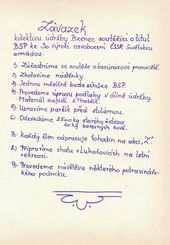 Závazek
kolektivu údržby Bzenec soutěžících o titul
BSP ke 30. výročí osvobození ČSSR Sovětskou
armádou.
1) Zúčastníme se soutěže o bezúrazové pracoviště.
2) Zhotovíme nástěnky.
3) Jednou měsíčně bude schůze BSP.
4) Provedeme úpravu podlahy v dílně údržby.
Materiál zajistí s.
5) Upravíme parčík před stolárnou.
6) Odevzdáme 2500 kg starého železa
kg barevných kovů.
7) Každý člen odpracuje hodin na akci „Z".
8) Připravíme chatu v Luhačovicích na letní
rekreaci.
9) Provedeme návštěvu některého potravinář-
ského podniku.